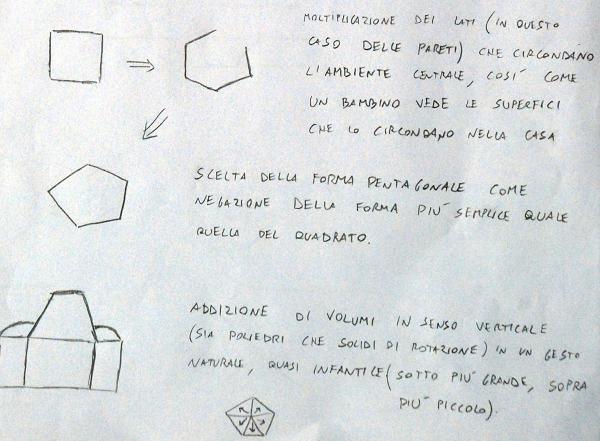 MOLTIPLICAZIONE DEI LATI (IN QUESTO
CASO DELLE PARETI) CHE CIRCONDANO
L'AMBIENTE CENTRALE, COSI' COME
UN BAMBINO VEDE LE SUPERFICI
CHE LO CIRCONDANO NELLA CASA
SCELTA DELLA FORMA PENTAGONALE COME
NEGAZIONE DELLA FORMA PIU' SEMPLICE QUALE
QUELLA DEL QUADRATO.
ADDIZIONE DI VOLUMI IN SENSO VERTICALE
(SIA POLIEDRI CHE SOLIDI DI ROTAZIONE) IN UN GESTO
NATURALE, QUASI INFANTILE (SOTTO PIU' GRANDE, SOPRA
PIU' PICCOLO).